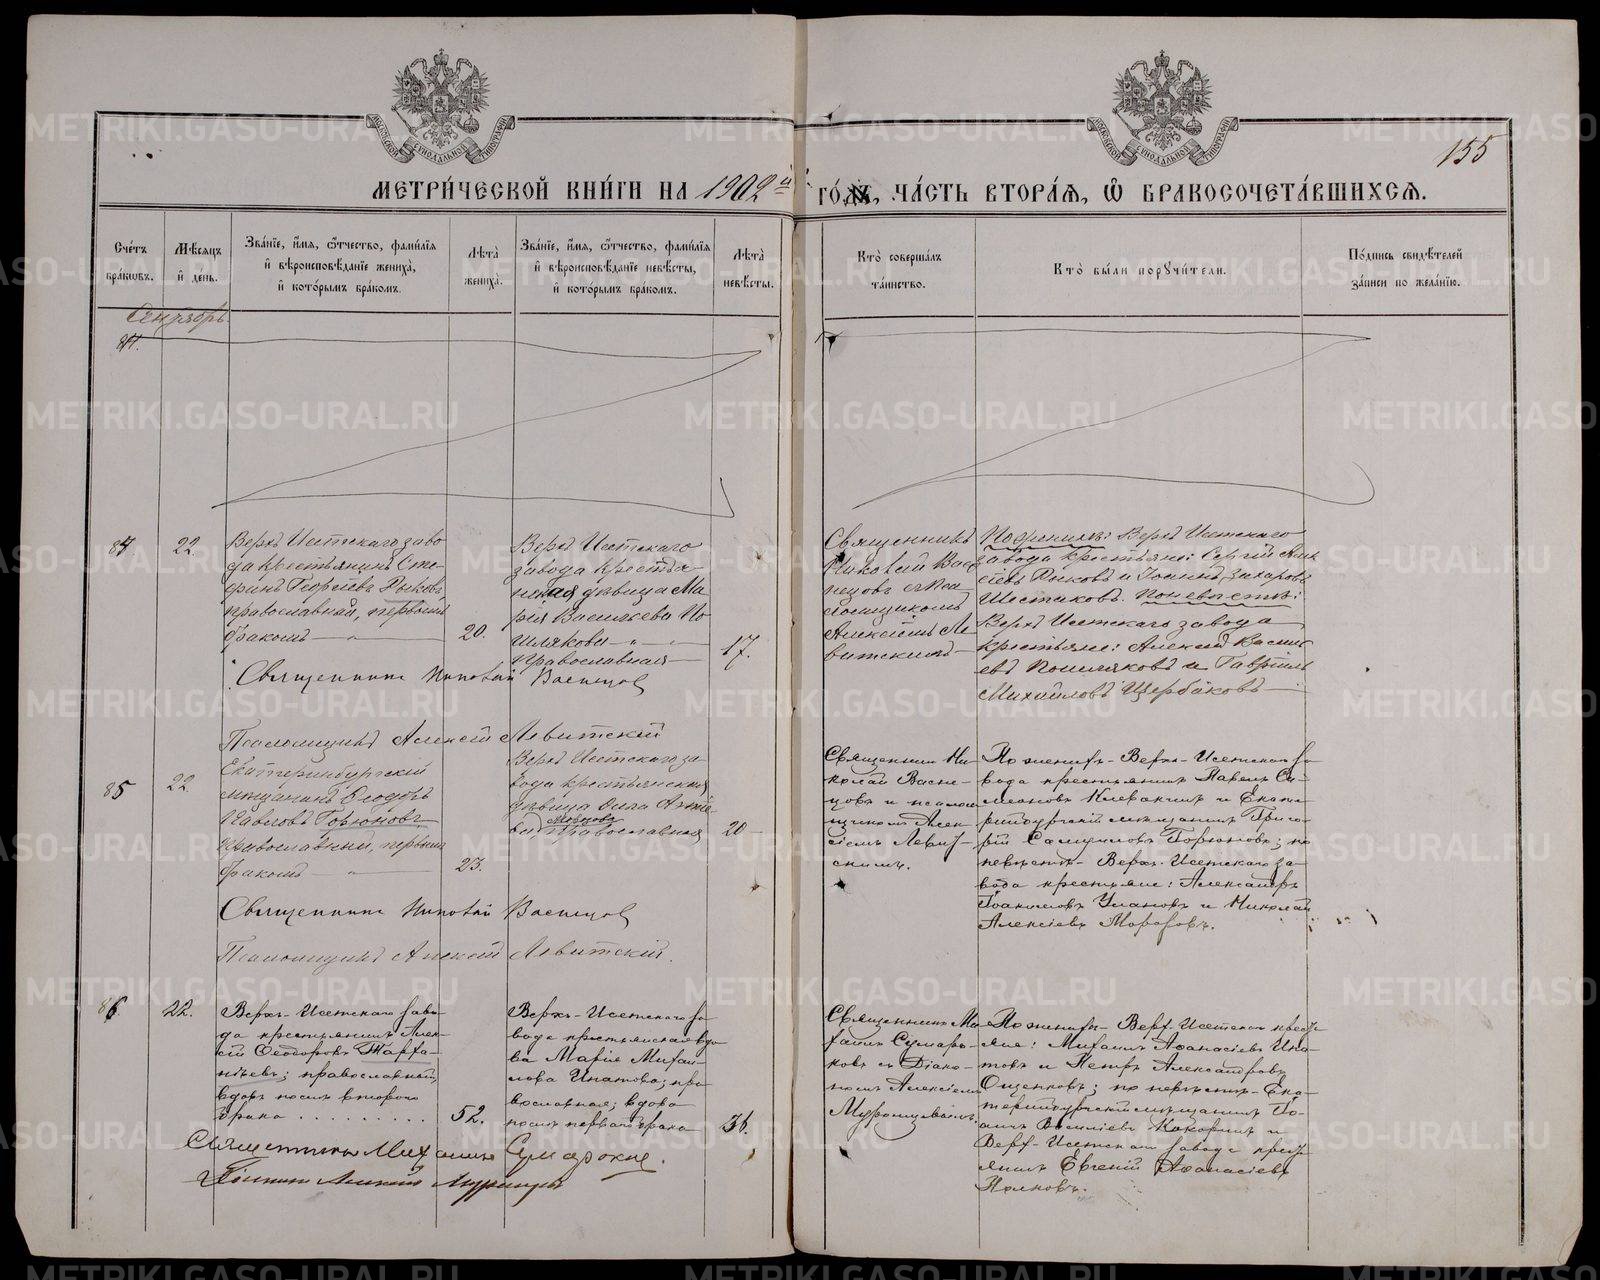 155
МЕТРИ́ЧЕСКОЙ КНИ́ГИ НА 1902й ГО́ДЪ, ЧА́СТЬ ВТОРА́Я, Ѽ БРАКОСОЧЕТА́ВШИХСѦ.
Сче́тъ бра́кѡвъ.
Мѣ́сяцъ и҆ де́нь.
Зва́нїе, и҆́мя, ѻ҆́тчество, фами́лїя и҆ вѣроисповѣ́данїе жениха̀, и҆ кото́рымъ бра́комъ.
Лѣ́та жениха̀.
Зва́нїе, и҆́мя, ѻ҆́тчество, фами́лїя и҆ вѣроисповѣ́данїе невѣ́сты, и҆ кото́рымъ бра́комъ.
Лѣ́та невѣ́сты.
Кто̀ соверша́лъ та́инство.
Кто̀ бы́ли порꙋчи́тели.
По́дпись свидѣ́телей за́писи по жела́нїю.
Сентябрь
84.
22.
Верхъ Исетскаго заво
да крестьянинъ Сте
финъ Георгіевъ Рыковъ
православный, первымъ
бракомъ
20.
Верхъ Исетскаго
завода крестья-
нская дѣвица Ма
рія Васильева По
шлякова
православная
17.
Священникъ
Николай Вас
нецовъ съ Пса
ломщикомъ
Алексѣемъ Ле
витскимъ
По женихѣ: Верхъ Исетскаго
завода крестьяне: Сергѣй Алек
сѣевъ Рыковъ и Іоаннъ Захаровъ
Шестаковъ. По невѣстѣ:
Верхъ Исетскаго завода
крестьяне: Алексѣй Василь
евъ Пошляковъ и Гавріилъ
Михайловъ Щербаковъ
Священникъ Николай Васнецовъ
Псаломщикъ Алексѣй Левитскій
85
22
Екатеринбургскій
мѣщанинъ Ѳеодоръ
Павловъ Горюновъ,
православный, первымъ
бракомъ
23.
Верхъ Исетскаго за-
вода крестьянская
дѣвица
православная
20
Священникъ Ни-
колай Васне-
цовъ и псалом
щикомъ Алек-
сѣемъ Левит-
скимъ.
По женихѣ- Верхъ-Исетскаго за-
вода крестьянинъ Павелъ Си-
меоновъ Клевакинъ и Екате-
ринбургскій мѣщанинъ Григо-
рій Самуиловъ Горюновъ; по
невѣстѣ- Верхъ-Исетскаго за-
вода крестьяне: Александръ
Іоакимовъ Улановъ и Николай
Алексѣевъ Морозовъ.
Священникъ Николай Васнецовъ
Псаломщикъ Алексѣй Левитскій.
86.
22.
Верхъ-Исетскаго заво-
да крестьянинъ Алек-
сѣй Ѳеодоровъ
православный,
вдовъ послѣ второго
брака
52.
Верхъ-Исетскаго за-
вода крестьянская вдо
ва Марія Михаи-
лова Ипатова; пра
вославная; вдова
послѣ перваго брака
36.
Священникъ Ми-
хаилъ Сумаро-
ковъ съ Діако-
номъ Алексіемъ
По женихѣ- Верх-Исетскаго крест-
яне: Михаилъ Аѳанасіевъ Ипа-
товъ и Петръ Александровъ
Ощепковъ; по невѣстѣ- Ека-
теринбургскій мѣщанинъ Іо-
аннъ Василіевъ Кокоринъ и
Верх-Исетскаго завода крест-
янинъ Евгеній Аѳанасіевъ
Полковъ.
Священникъ Михаилъ Сумароковъ.
METRIKI.GASO-URAL.RU